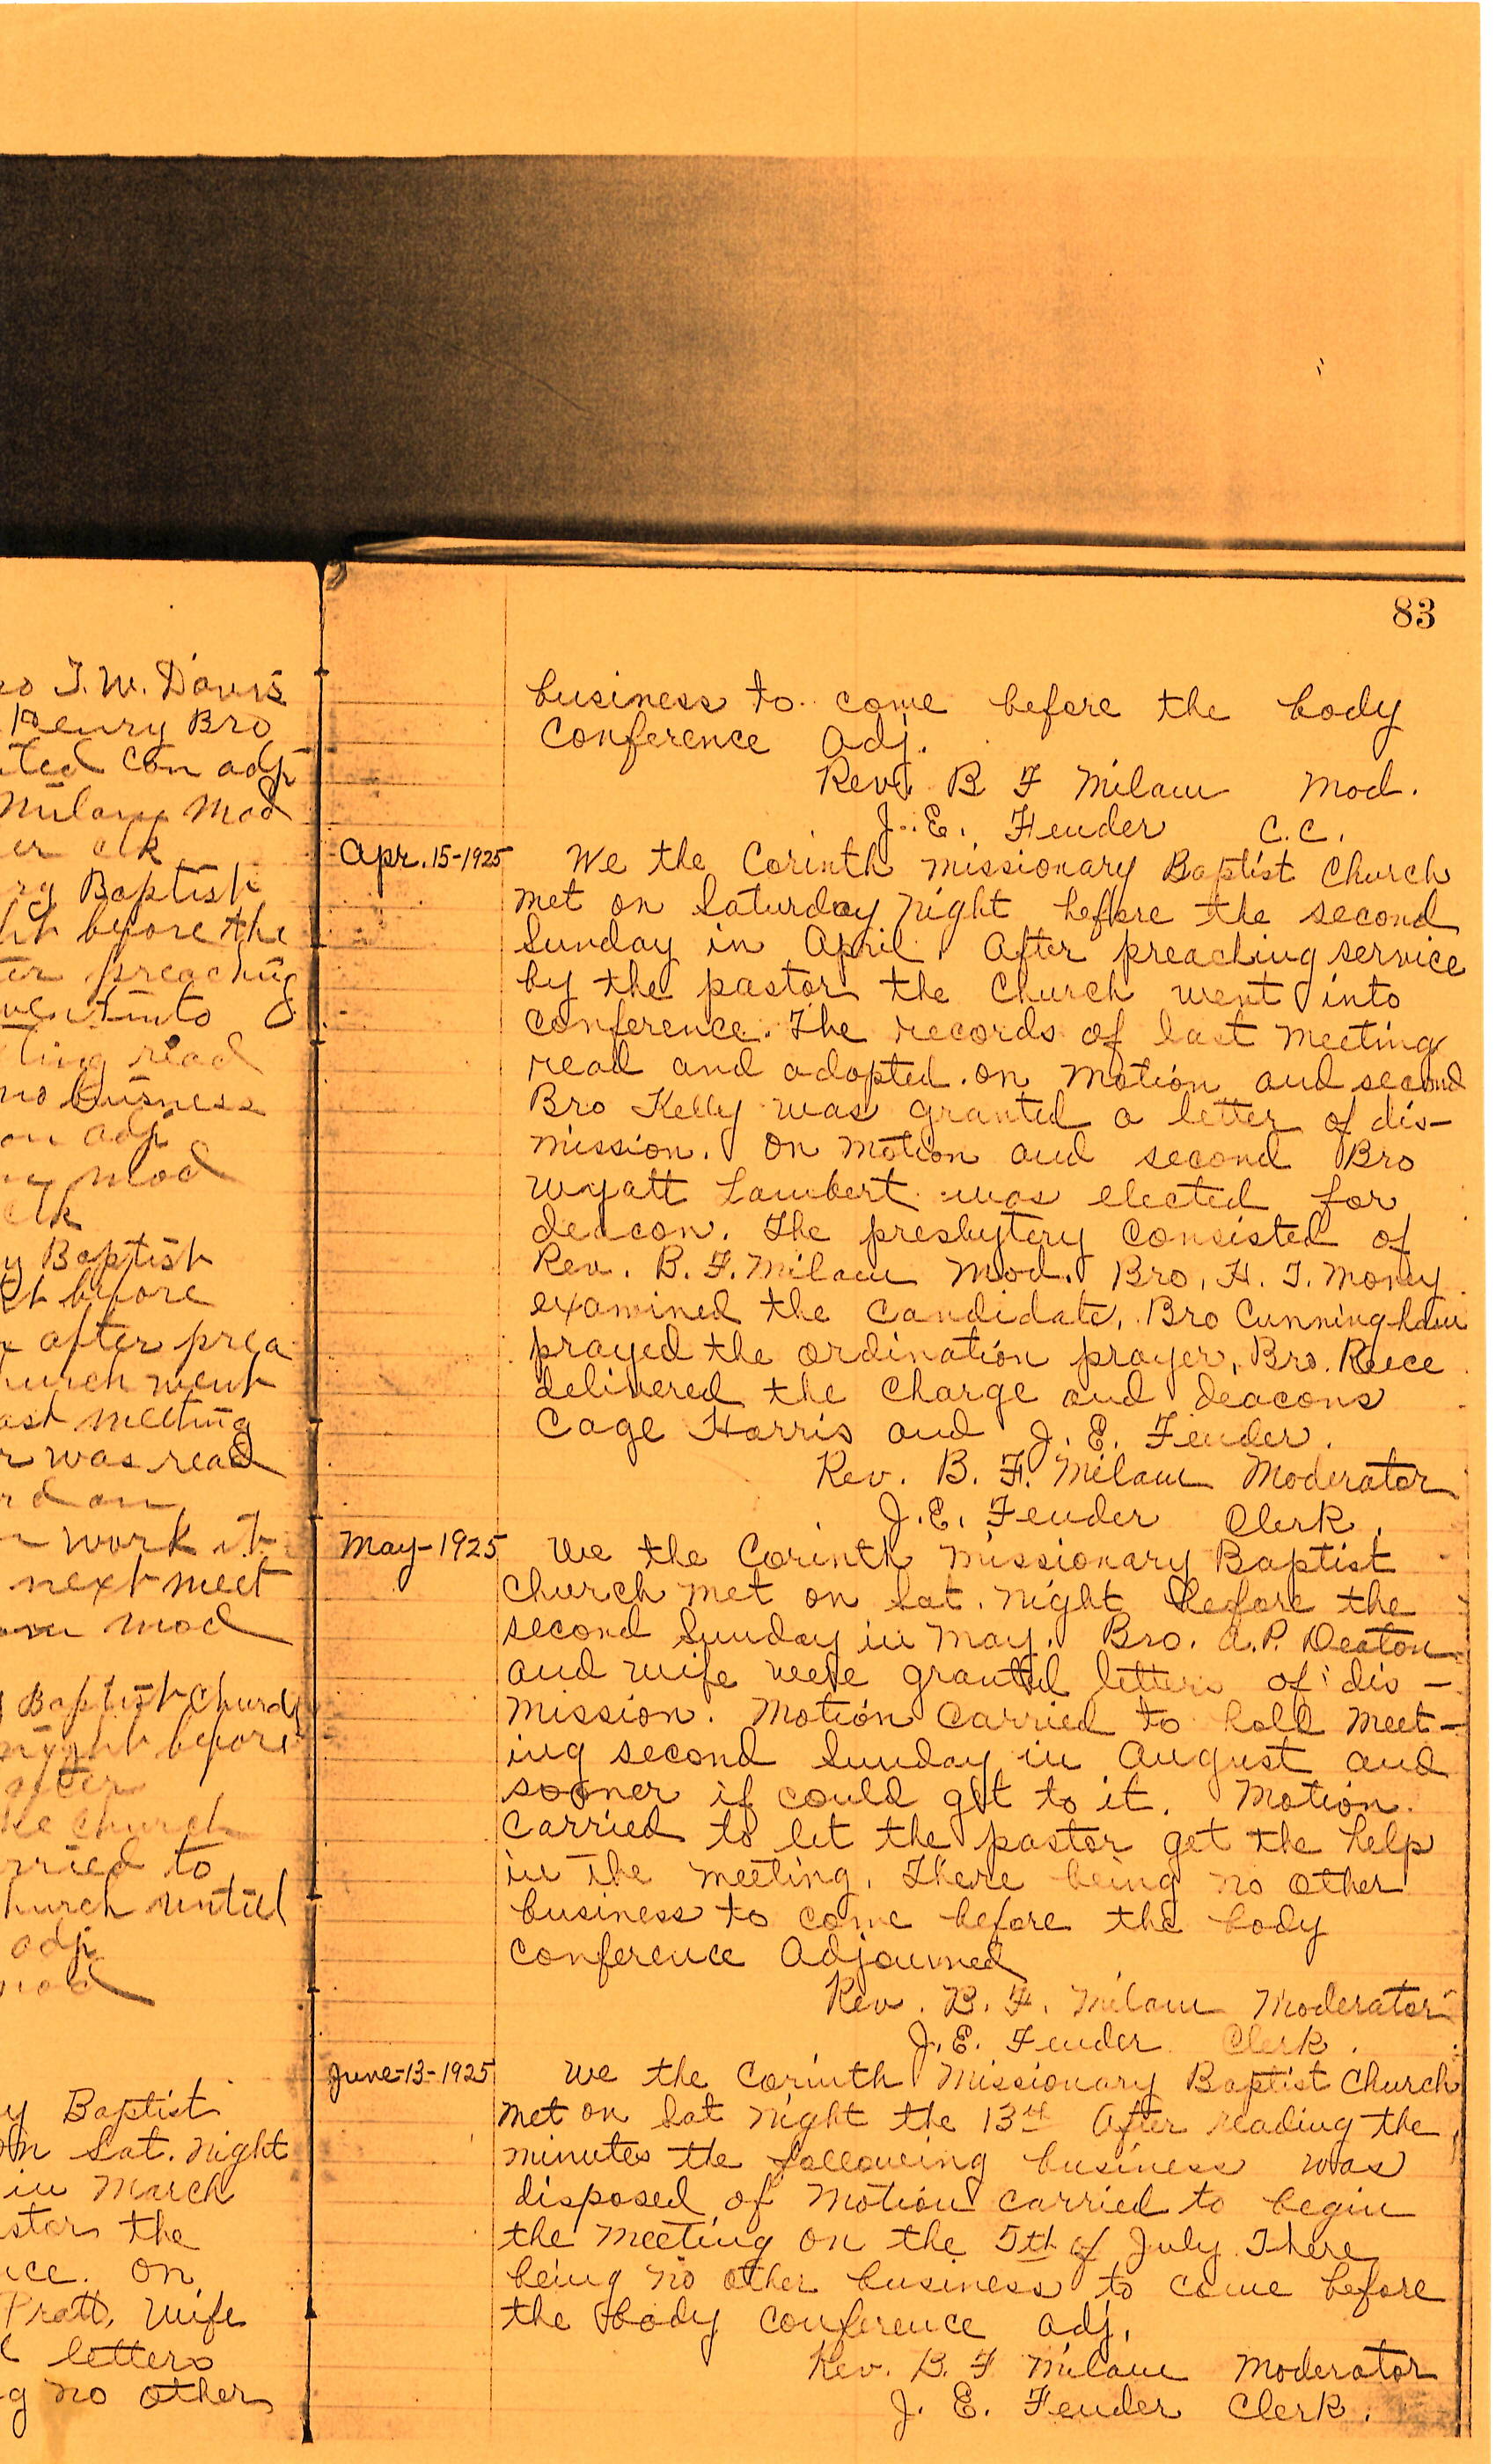 T. W. Davis
Henry Bro
ted Con adj
Milam Mod
er clk
ry Baptist
ht before the
ter preaching
went into
ting read
no business
on adj
Mod
clk
y Baptist
ht before
after prea
hurch went
ast meeting
r was read
work it
next meet
Mod
Baptist Church
night before
after
he church
rried to
hurch until
adj
mod
y Baptist
on Sat. night
in March
stor the
nce. On
Pratt, Wife
letters
g no other
83
business to come before the body
Conference Adj.
Rev. B F Milam Mod.
J. E. Fender C.C.
Apr. 15-1925 We the Corinth Missionary Baptist Church
met on Saturday night before the second
Sunday in April. After preaching service
by the pastor the Church went into
conference. The records of last meeting
read and adopted. On motion and second
Bro Kelly was granted a letter of dis-
mission. On motion and second Bro
Wyatt Lambert was elected for
deacon. The presbytery consisted of
Rev. B. F. Milam Mod. Bro. H. T. Money
examined the candidate, Bro Cunningham
prayed the ordination prayer, Bro. Reece
delivered the charge and deacons
Cage Harris and J. E. Fender.
Rev. B. F. Milam Moderator
J. E. Fender Clerk.
May-1925 We the Corinth Missionary Baptist
Church met on Sat. night before the
second Sunday in May. Bro. A. P. Deaton
and wife were granted letters of dis-
mission. Motion carried to hold meet-
ing second Sunday in August and
sooner if could get to it. Motion
carried to let the pastor get the help
in the meeting. There being no other
business to come before the body
conference Adjourned
Rev. B. F. Milam Moderator
J. E. Fender Clerk.
June-13-1925 We the Corinth Missionary Baptist Church
met on Sat night the 13th After reading the
minutes the following business was
disposed of Motion carried to begin
the meeting on the 5th of July. There
being no other business to come before
the body conference adj.
Rev. B. F Milam Moderator
J. E. Fender Clerk.